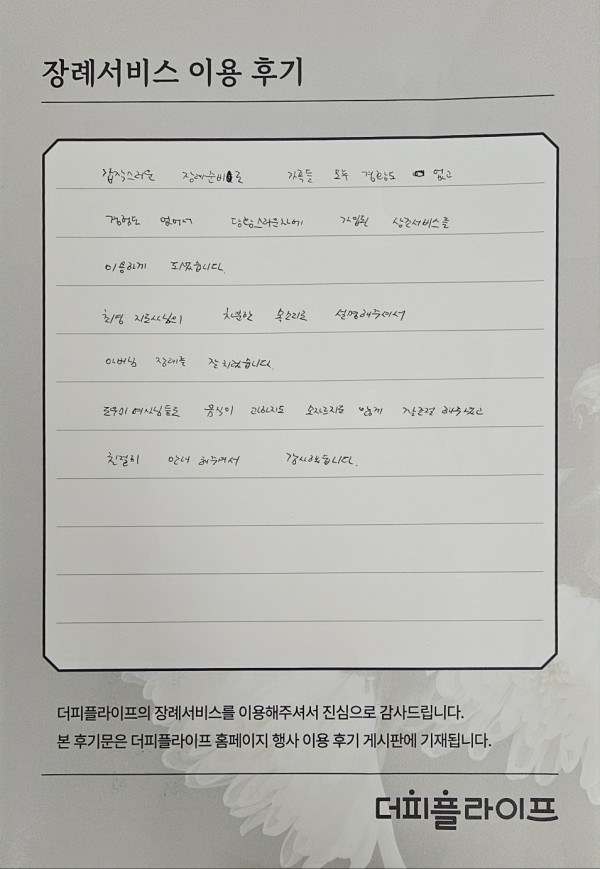 장례서비스 이용 후기
갑작스러운 장례준비를 가족들 모두 경황도 없고
경험도 없어서 당황스러운차에 가입된 상조서비스를
이용하게 되었습니다.
최영 지도사님이 차분한 목소리로 설명해주셔서
아버님 장례를 잘 치렀습니다.
도우미 여사님들도 음식이 과하지도 모자르지도 않게 잘 해주셨고
친절히 안내 해주셔서 감사했습니다.
더피플라이프의 장례서비스를 이용해주셔서 진심으로 감사드립니다.
본 후기문은 더피플라이프 홈페이지 행사 이용 후기 게시판에 기재됩니다.
더피플라이프